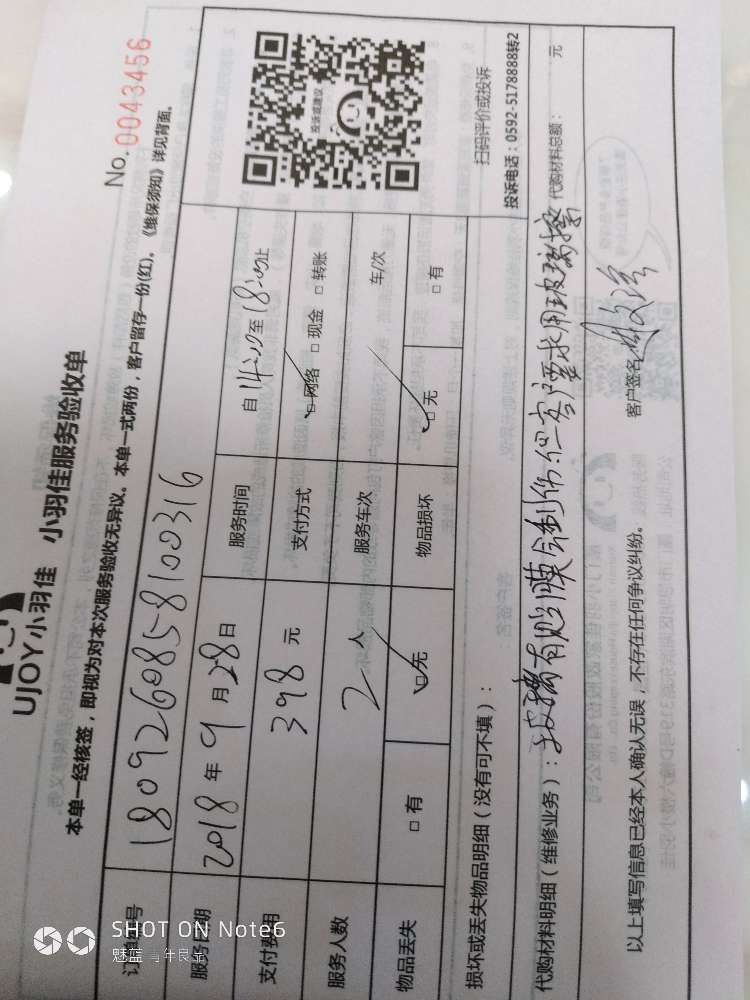 UJOY小羽佳 小羽佳服务验收单
No.0043456
本单一经核签，即视为对本次服务验收无异议。本单一式两份，客户留存一份(红)。《维保须知》详见背面。
订单编号 1809260858100316
服务日期 2018年9月28日 服务时间 自14:00至18:00止
支付费用 398元 支付方式 □网络 □现金 □转账
服务人数 2人 服务车次 车/次
物品丢失 □有 □无 物品损坏 □无 □有
投诉或建议
扫码评价或投诉
投诉电话：0592-5178888转2
损坏或丢失物品明细（没有可不填）：
代购材料明细（维修业务）：玻璃有贴膜会刮伤但客户要求用玻璃擦 代购材料总额： 元
以上填写信息已经本人确认无误，不存在任何争议纠纷。 客户签名
SHOT ON Note6
魅蓝